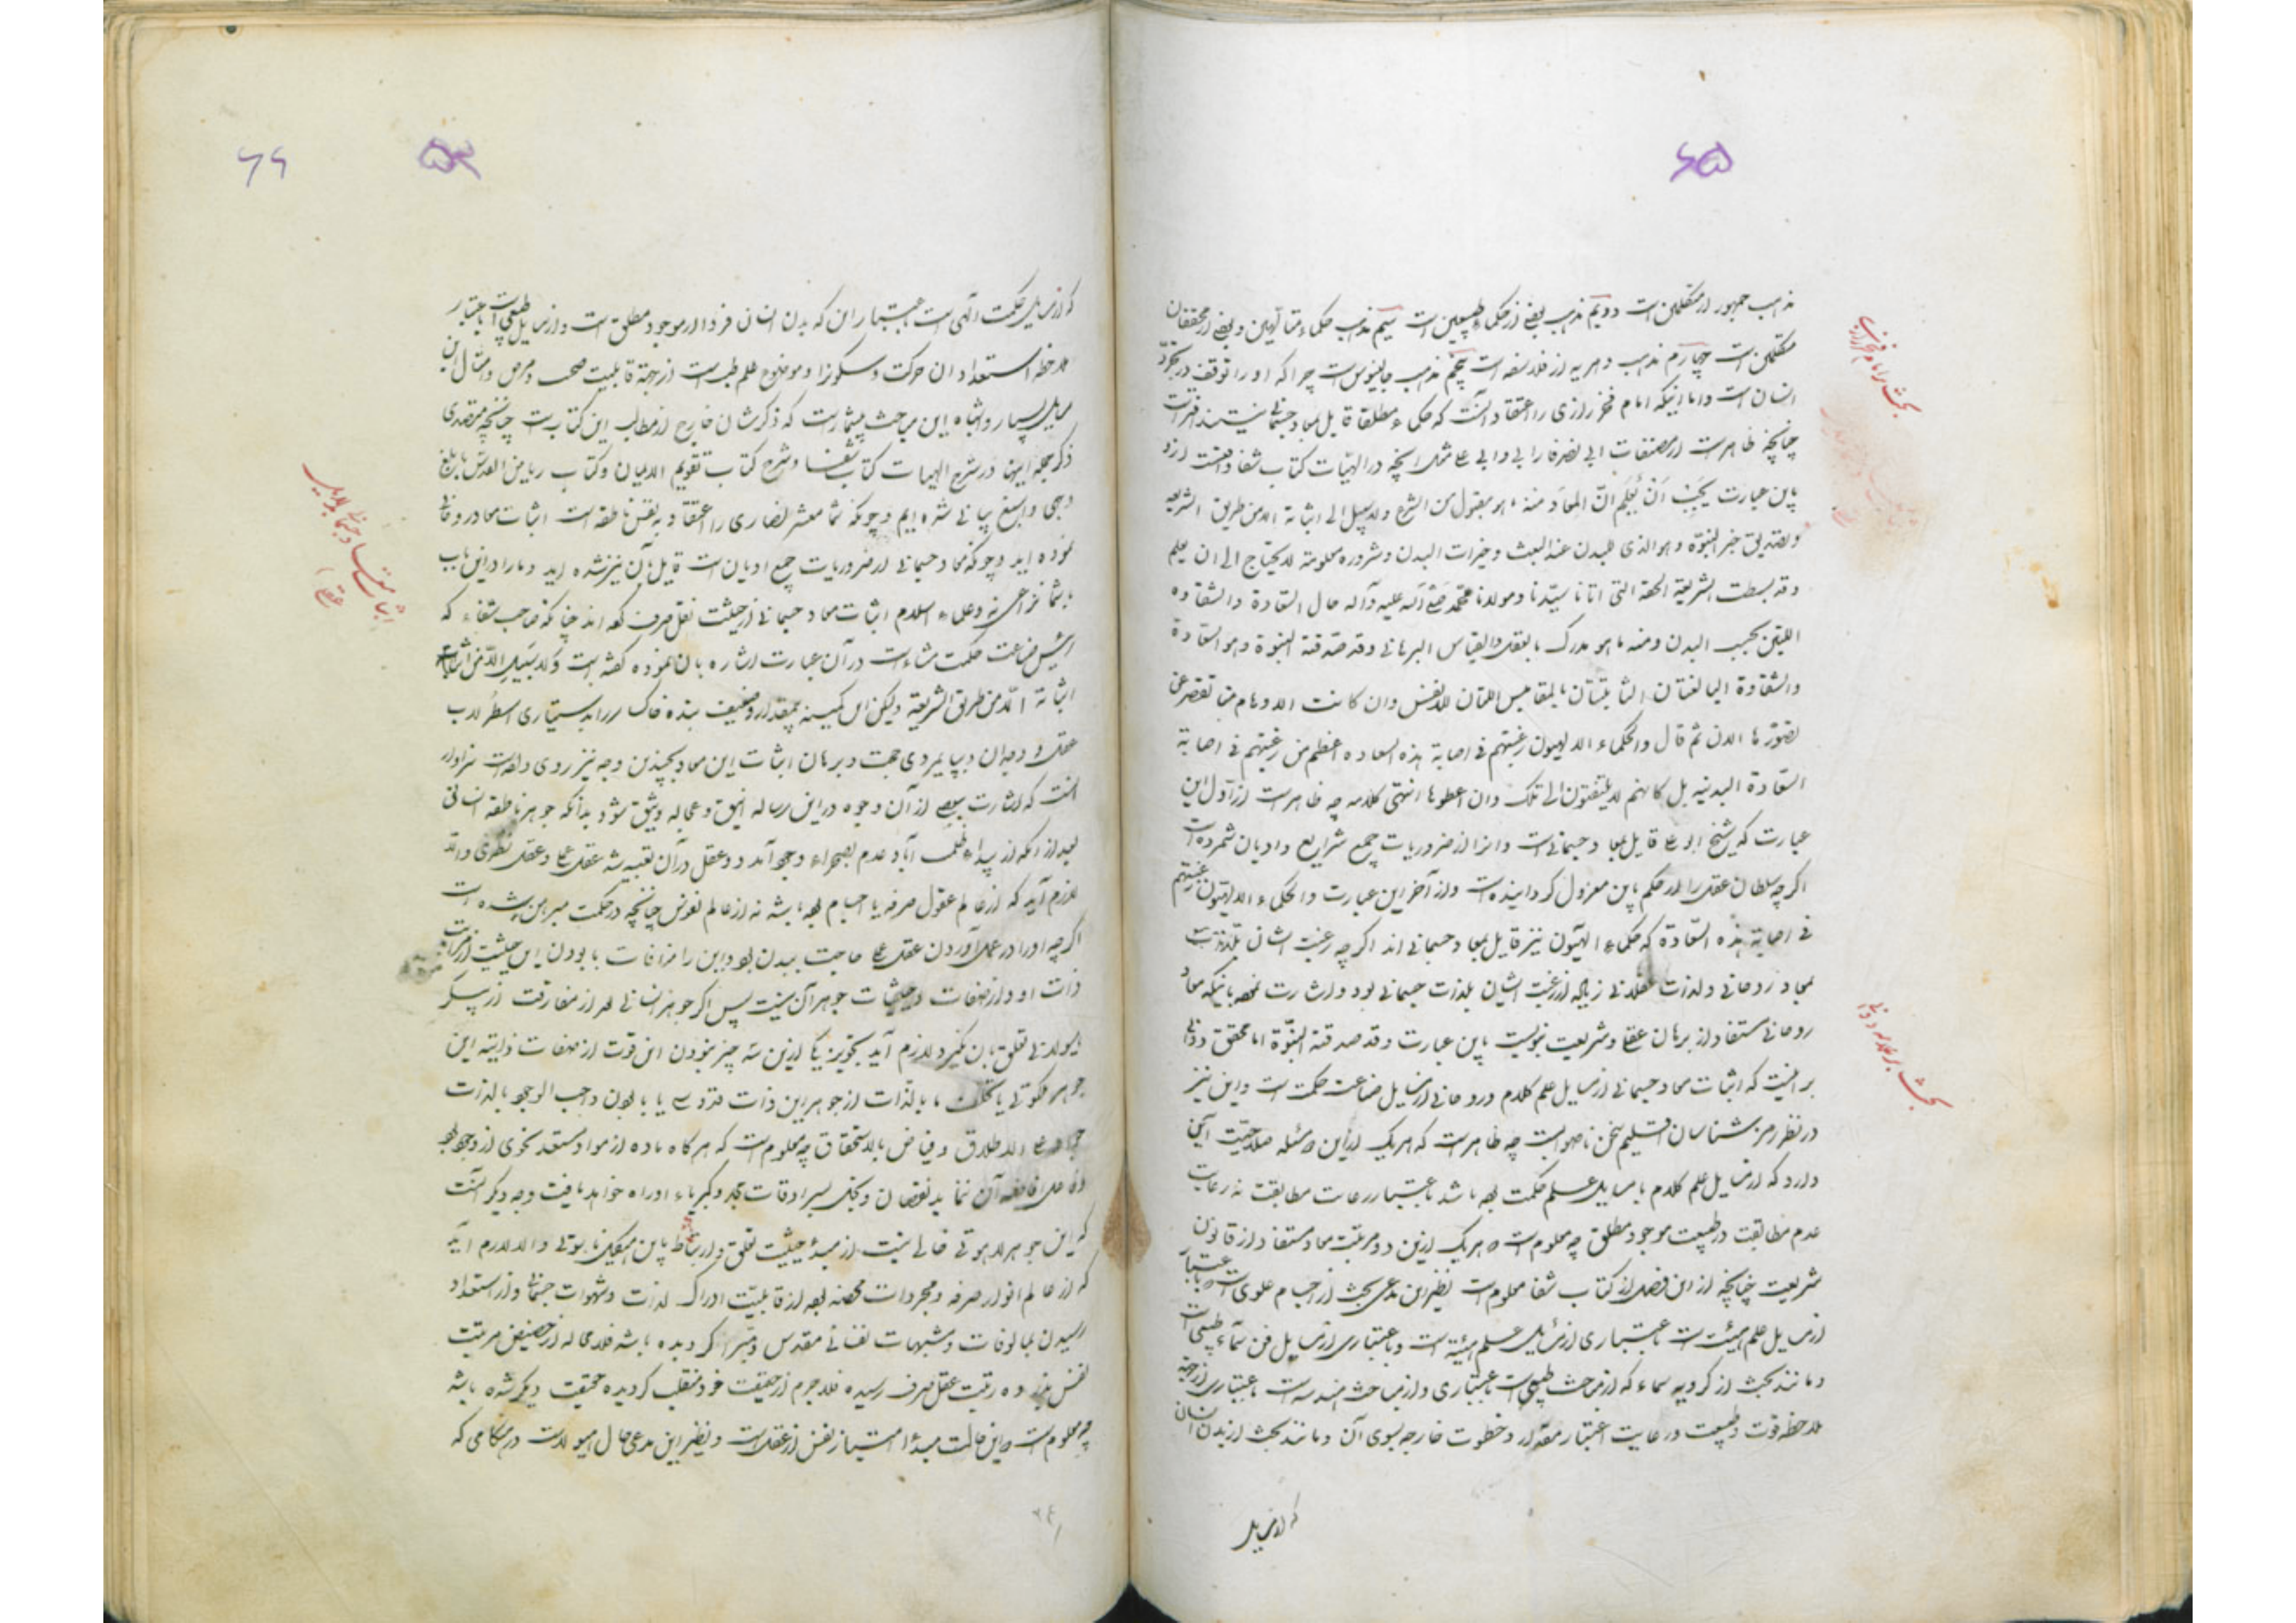 ۶۵
مذهب جمهور از متکلمین است دویم مذهب بعضی از حکماء طبیعیین است سیم مذهب حکماء متألهین و بعضی از محققان
متکلمین است چهارم مذهب دهریه از فلاسفه است پنجم مذهب جالینوس است چرا که او را توقف در تجرد
انسان است و اما اینکه امام فخر رازی را اعتقاد آنست که حکماء مطلقا قایل بمعاد جسمانی نیستند افتراست
چنانچه ظاهر است از مصنفات ابی نصر فارابی و ابی علی مثل آنچه در الهیات کتاب شفا
باین عبارت یجب أن یُعلم انّ المعاد منه ما هو مقبول من الشرع ولا سبیل الی اثباته الا من طریق الشریعه
و تصدیق خبر النبوة و هو الذی للبدن عند البعث و خیرات البدن و شروره معلومة لا یحتاج الی ان یعلم
و قد بسطت الشریعة الحقة التی اتانا سیّدنا و مولانا محمّد صلی الله علیه و آله حال السّعادة و الشقاوه
اللتین بحسب البدن و منه ما هو مدرک بالعقل والقیاس البرهانی و قد صدّقته النبوة و هو السّعادة
والشقاوة البالغتان الثابتتان بالمقاییس اللتان للانفس وان کانت الاوهام منا تقصر عن
تصوّرها الان ثم قال والحکماء الالهیون رغبتهم فی اصابة هذه السعاده اعظم من رغبتهم فی اصابة
السّعادة البدنیه بل کانهم لا یلتفتون الی تلک وان اعطوها انتهی کلامه چه ظاهر است از اوّل این
عبارت که شیخ ابو علی قایل بمعاد جسمانی است و انرا از ضروریات جمیع شرایع و ادیان شمرده است
اگرچه سلطان عقل را از حکم باین معزول گردانیده است و از آخر این عبارت والحکماء الالهیون رغبتهم
فی اصابة هذه السّعادة که حکماء الهیّون نیز قایل بمعاد جسمانی اند اگرچه رغبت ایشان
بمعاد روحانی و لذات عقلانی زیاده از رغبت ایشان بلذات جسمانی بود و اشارت نموده باینکه معاد
روحانی مستفاد از برهان عقلی و شریعت نبویست باین عبارت و قد صدقته النبوّة اما محقق دوانی
بر انست که اثبات معاد جسمانی از مسایل علم کلام و روحانی از مسایل صناعت حکمت است و این نیز
در نظر رمز شناسان اقلیم سخن ناصوابست چه ظاهر است که هر یک از این دو مسئله صلاحیّت آن
دارد که از مسایل علم کلام یا مسایل علم حکمت بوده باشد باعتبار رعایت مطابقت نه رعایت
عدم مطابقت در طبیعت موجود مطلق چه معلوم است که هر یک ازین دو مرتبت معاد مستفاد از قانون
شریعت چنانچه از این فصل از کتاب شفا معلوم است نظیر این مدعی بحث از اجسام علوی است که باعتبار
از مسایل علم هیئت است باعتباری از مسایل علم هیئة است و باعتباری از مسایل فن سماء طبیعی است
و مانند بحث از کرویه سماء که از مباحث طبیعی است باعتباری و از مباحث هندسه است باعتباری از جهة
ملاحظه قوت و طبیعت و رعایت اعتبار مقدار و خطوط خارجه بسوی آن و مانند بحث از بدن انسان
که از مسایل
بحث بر امام فخر رازی
بحث بر علامه دوانی
۵۳
۶۶
که از مسایل حکمت الهی است باعتبار ان که بدن انسان فردا از موجود مطلق است و از مسایل طبیعی است باعتبار
ملاحظه استعداد ان حرکت و سکونرا و موضوع علم طب است از جهة قابلیت صحت و مرض و امثال این
مسایل بسیار و اشباه این مباحث بیشمار است که ذکرشان خارج از مطالب این کتابست چنانچه متصدی
ذکر جمله اینها در شرح الهیات کتاب شفا و شرح کتاب تقویم الایمان و کتاب ریاض القدس بابلغ
وجهی و اسبغ بیانی شده ایم و چونکه شما معشر نصاری را اعتقاد به نفس ناطقه است اثبات معاد روحانی
نموده اید و چونکه معاد جسمانی از ضروریات جمیع ادیان است قایل بآن نیز شده اید و ما را در این باب
با شما نزاعی نه و علماء اسلام اثبات معاد جسمانی از حیثیت نقل صرف کرده اند چنانکه صاحب شفاء که
رئیس صناعت حکمت مشاء است در آن عبارت اشاره بان نموده گفته است ولا سبیل
اثباته الّا من طریق الشریعة ولیکن این کمینه بیمقدار و ضعیف بنده خاکسار را بدستیاری اسطرلاب
عقل و وجدان و بپایمردی حجت و برهان اثبات این معاد بچندین وجه نیز روی داده است سزاوار
انست که اشارت ببعضی از آن وجوه در این رساله انیق و عجاله وثیق شود بدانکه جوهر ناطقه انسانی
بعد از انکه از بیداء ظلمت آباد عدم بصحراء وجود آمد دو عقل در آن تعبیه شد عقل عملی و عقل نظری والّا
لازم آید که از عالم عقول صرفه یا اجسام بوده باشد نه از عالم نفوس چنانچه در حکمت مبرهن شده است
اگرچه او را در عمل آوردن عقل عملی حاجت ببدن بود و این را منافات با بودن این حیثیت از مراتب
ذات او و از صفات و حیثیات جوهر آن نیست پس اگر جوهر انسانی بعد از مفارقت از پیکر
هیولانی تعلق بآن نگیرد لازم آید تجویز یکی ازین سه چیز نبودن این قوت از صفات ذاتیه این
جوهر ملکوتی یا تخلف ما بالذّات از جوهر این ذات قدوسی یا نبودن واجب الوجود بالذات
جواد علی الاطلاق و فیاض بالاستحقاق چه معلوم است که هرگاه ماده از مواد مستعد نحوی از وجود بود
و فاعل افاضه آن ننماید نقصان و بخل بسرادقات مجد و کبریاء او راه خواهد یافت وجه دیگر آنست
که این جوهر لاهوتی خالی نیست از مبدء حیثیت تعلق و ارتباط باین هیکل ناسوتی والا لازم آید
که از عالم انوار صرفه و مجردات محضه بوده از قابلیّت ادراک لذات و شهوات جسمانی و از استعداد
رسیدن بمألوفات و مشتهیات نفسانی مقدس و مبرّا گردیده باشد فلا محاله از حضیض مرتبت
نفس بذروه رتبت عقل صرف رسیده فلا جرم از حقیقت خود منقلب گردیده حقیقت دیگر شده باشد
چه معلوم است که این حالت مبدء امتیاز نفس از عقل است و نظیر این مدعی حال هیولاست در هنگامی که
اثبات معاد جسمانی بدلایل
عقلی